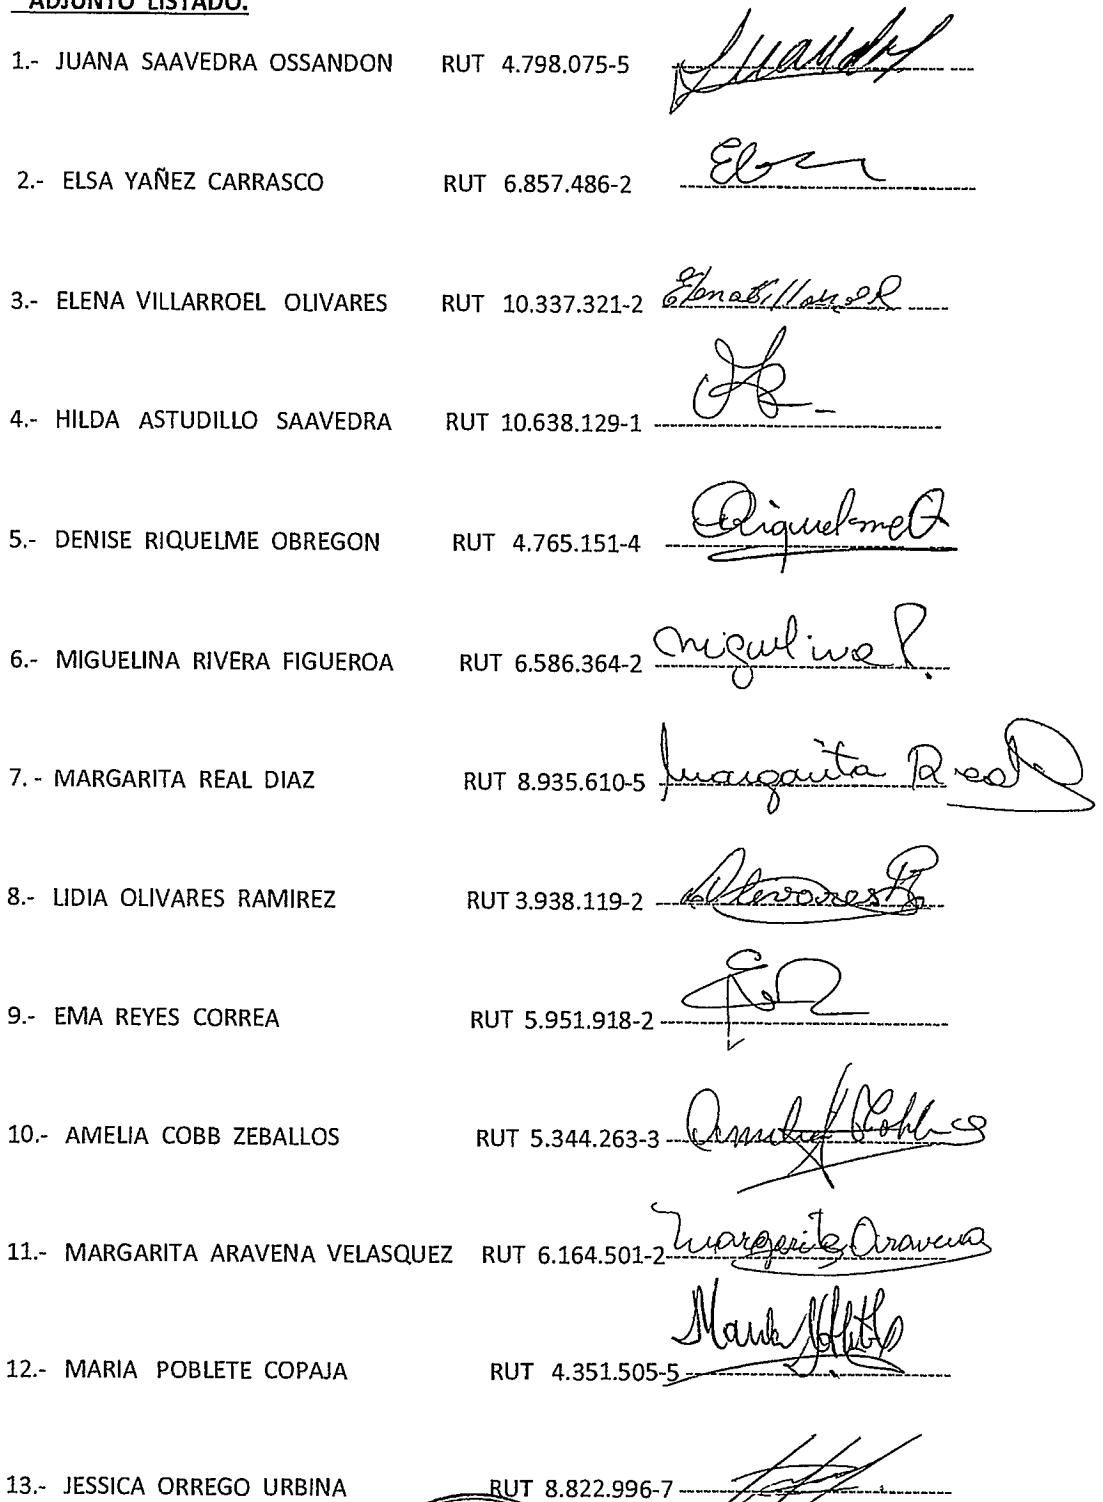 ADJUNTO LISTADO.
1.- JUANA SAAVEDRA OSSANDON RUT 4.798.075-5 Juana
2.- ELSA YAÑEZ CARRASCO RUT 6.857.486-2
3.- ELENA VILLARROEL OLIVARES RUT 10.337.321-2 Elena Villarroel
4.- HILDA ASTUDILLO SAAVEDRA RUT 10.638.129-1
5.- DENISE RIQUELME OBREGON RUT 4.765.151-4 Riquelme O
6.- MIGUELINA RIVERA FIGUEROA RUT 6.586.364-2 Miguelina R.
7. - MARGARITA REAL DIAZ RUT 8.935.610-5 Margarita Real
8.- LIDIA OLIVARES RAMIREZ RUT 3.938.119-2 Olivares R
9.- EMA REYES CORREA RUT 5.951.918-2
10.- AMELIA COBB ZEBALLOS RUT 5.344.263-3 Amelia Cobb
11.- MARGARITA ARAVENA VELASQUEZ RUT 6.164.501-2 Margarita Aravena
12.- MARIA POBLETE COPAJA RUT 4.351.505-5 Maria Poblete
13.- JESSICA ORREGO URBINA RUT 8.822.996-7